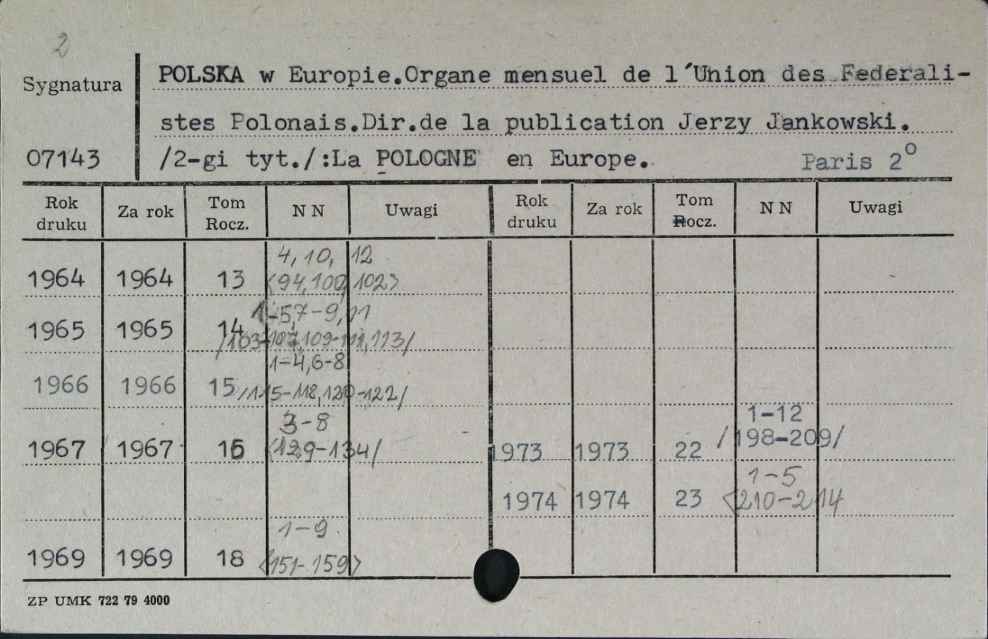 2
Sygnatura
POLSKA w Europie.Organe mensuel de l'Union des Federali-
stes Polonais.Dir.de la publication Jerzy Jankowski.
07143 /2-gi tyt./:La POLOGNE en Europe. Paris 2°
Rok druku Za rok Tom Rocz. NN Uwagi Rok druku Za rok Tom Rocz. NN Uwagi
4, 10, 12
1964 1964 13 <94,100,102>
1-5,7-9,11
1965 1965 14 /103-107,109-111,113/
1-4,6-8
1966 1966 15 /115-118,120-122/
3-8
1967 1967 16 <129-134/
1-12
1973 1973 22 /198-209/
1-5
1974 1974 23 <210-214
1-9
1969 1969 18 <151-159>
ZP UMK 722 79 4000